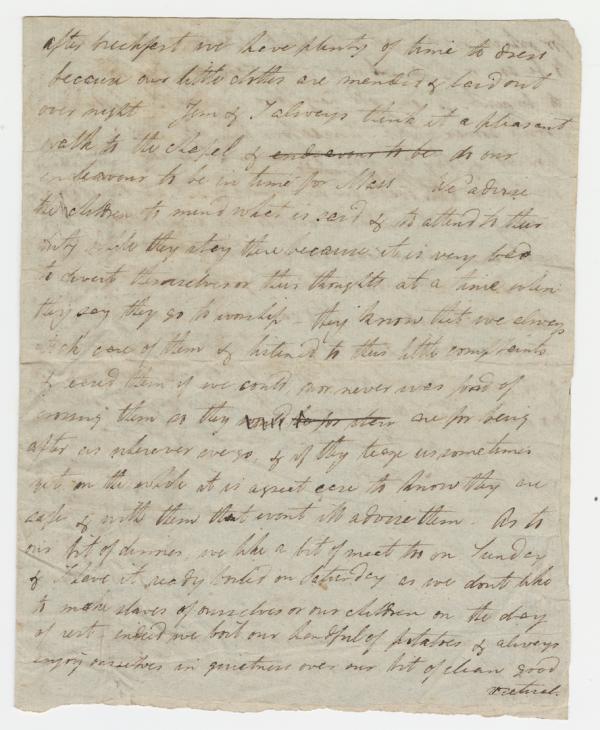 after breakfast we have plenty of time to dress
because our little clothes are mended & laid out
over night Jem & I always think it a pleasant
walk to the chapel & endeavour to be do our
endeavour to be in time for Mass We advise
the children to mind what is said & to attend to their
duty while they stay there because it is very bad
to divert themselves or their thoughts at a time when
they say they go to worship - they know that we always
took care of them & listened to their little complaints
& eased them if we could nor never was fond of
crossing them so they are for being
after us wherever we go, & if they teaze us sometimes
yet on the whole it is a great ease to know they are
safe & with them that wont ill advise them. As to
our bit of dinner, we like a bit of meet too on Sunday
& I have it ready boiled on Saturday as we dont like
to make slaves of ourselves or our children on the day
of rest - indeed we boil our handful of potatoes & always
enjoy ourselves in quietness over our bit of clean good
victual.